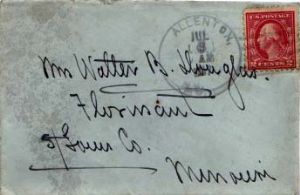 ALLENTON
JUL
6
AM
U.S. POSTAGE
2 CENTS 2
Mr Walter B. Douglas.
Florissant
St Louis Co.
Missouri